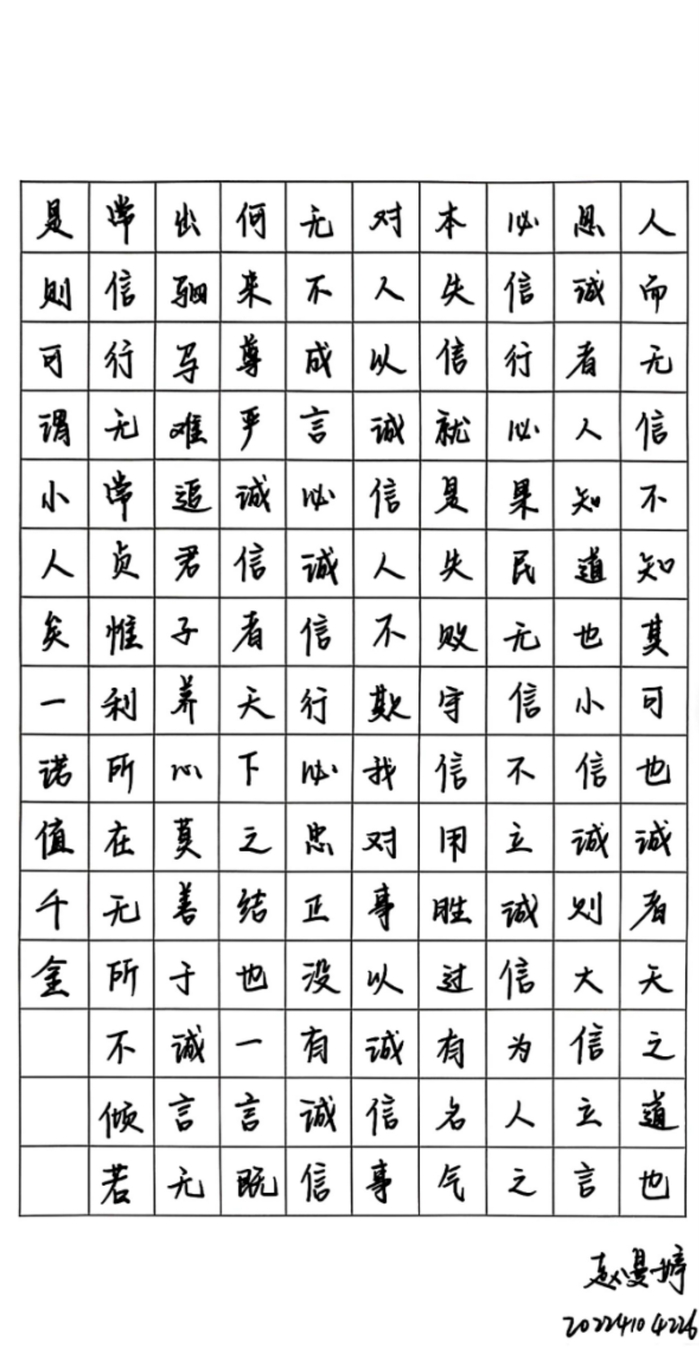 人而无信不知其可也诚者天之道也
思诚者人知道也小信诚则大信立言
必信行必果民无信不立诚信为人之
本失信就是失败守信用胜过有名气
对人以诚信人不欺我对事以诚信事
无不成言必诚信行必忠正没有诚信
何来尊严诚信者天下之结也一言既
出驷马难追君子养心莫善于诚言无
常信行无常贞惟利所在无所不倾若
是则可谓小人矣一诺值千金
赵曼婷
20224104226